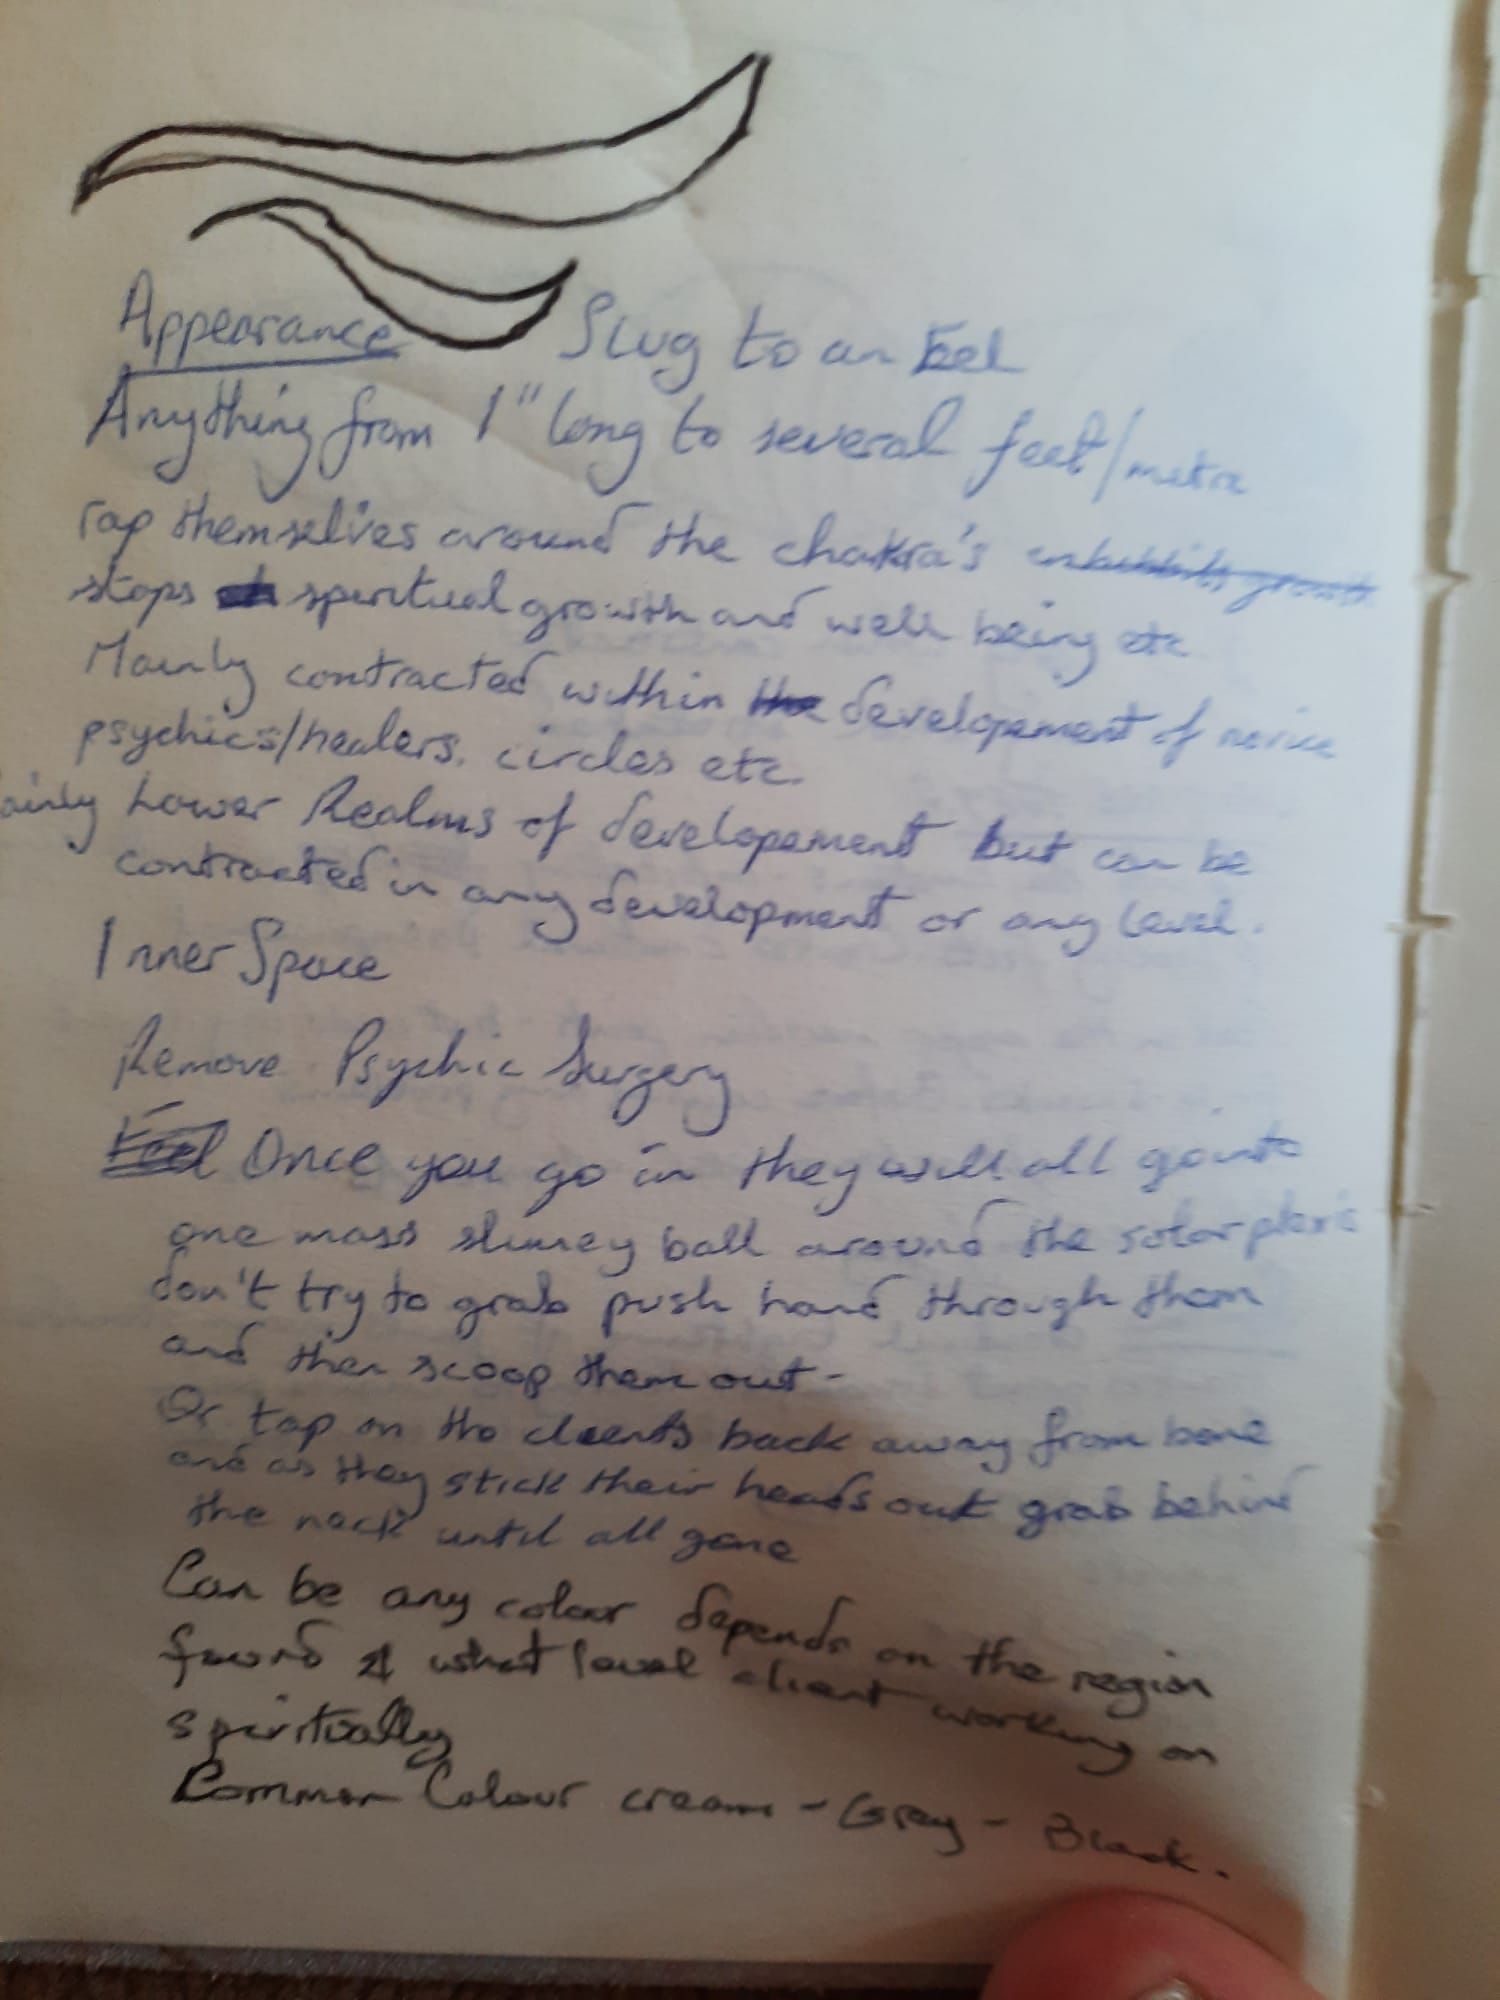 Appearance Slug to an Eel
Anything from 1" long to several feet/metre
rap themselves around the chakra's
stops spiritual growth and well being etc
Mainly contracted within the developement of novice
psychics/healers, circles etc.
ainly Lower Realms of developement but can be
contracted in any development or any level.
Inner Space
Remove Psychic Surgery
Feel Once you go in they will all go into
one mass slimey ball around the solar plexis
don't try to grab push hand through them
and then scoop them out -
Or tap on the clients back away from bone
and as they stick their heads out grab behind
the neck until all gone
Can be any colour depends on the region
found & what level client working on
spiritually
Common Colour cream - Grey - Black.